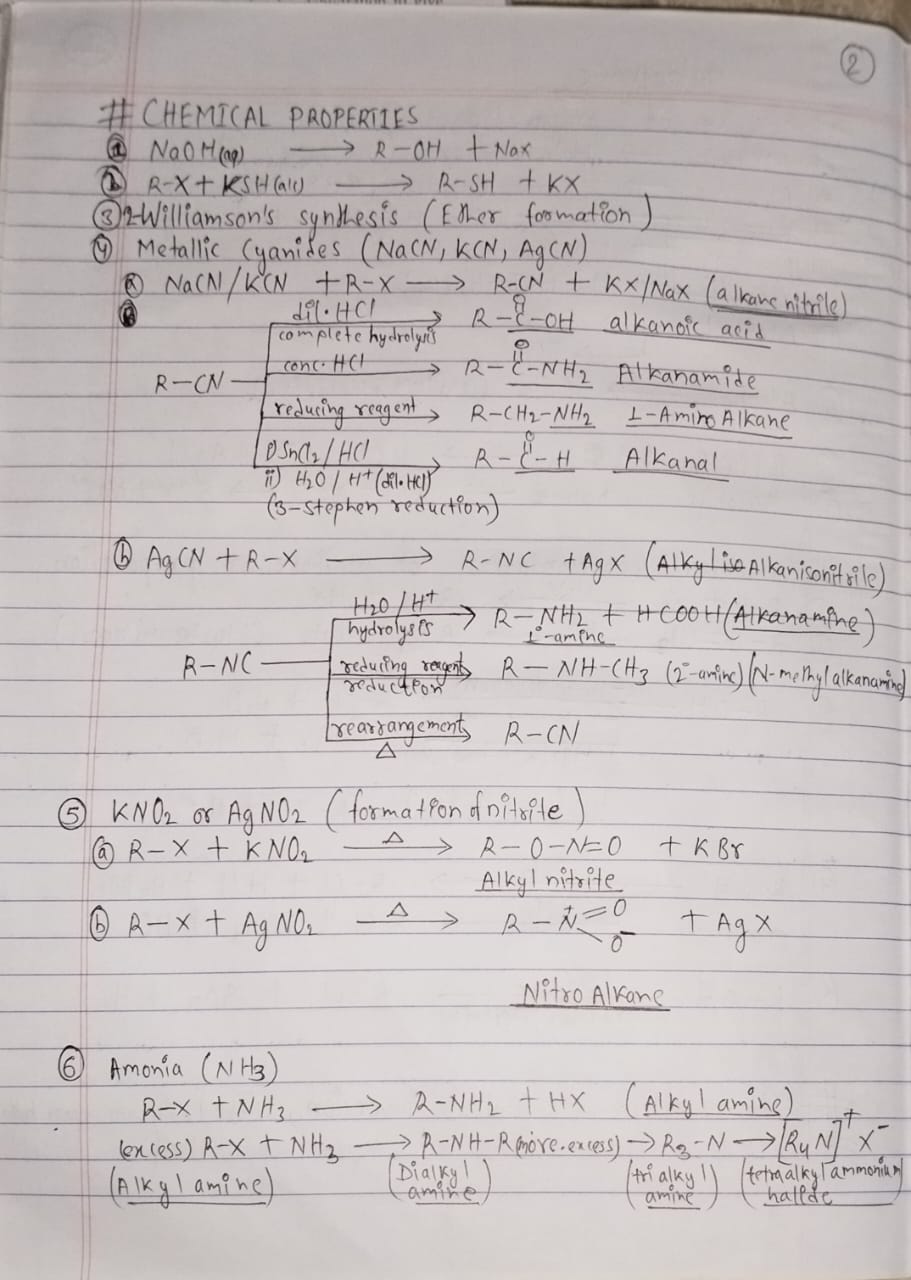 ②
# CHEMICAL PROPERTIES
① NaOH(aq) → R-OH + Nax
② R-X + KSH(alc) → R-SH + KX
③ Williamson's synthesis (Ether formation)
④ Metallic Cyanides (NaCN, KCN, AgCN)
ⓐ NaCN/KCN + R-X → R-CN + KX/NaX (alkane nitrile)
dil. HCl
complete hydrolysis → R-C(=O)-OH alkanoic acid
conc. HCl → R-C(=O)-NH2 Alkanamide
R-CN
reducing reagent → R-CH2-NH2 1-Amino Alkane
i) SnCl2/HCl → R-C(=O)-H Alkanal
ii) H2O/H+ (dil. HCl)
(3-stephen reduction)
ⓑ AgCN + R-X → R-NC + AgX (Alkyl iso Alkanisonitrile)
H2O/H+
hydrolysis → R-NH2 + HCOOH (Alkanamine)
1°-amine
R-NC
reducing reagent → R-NH-CH3 (2°-amine) (N-methylalkanamine)
reduction
rearrangement → R-CN
△
⑤ KNO2 or AgNO2 (formation of nitrite)
ⓐ R-X + KNO2 △→ R-O-N=O + KBr
Alkyl nitrite
ⓑ R-X + AgNO2 △→ R-N+(=O)O- + AgX
Nitro Alkane
⑥ Amonia (NH3)
R-X + NH3 → R-NH2 + HX (Alkyl amine)
(excess) R-X + NH3 → R-NH-R (more.excess) → R3-N → [R4N]+ X-
(Alkyl amine) (Dialkyl amine) (tri alkyl amine) (tetraalkyl ammonium halide